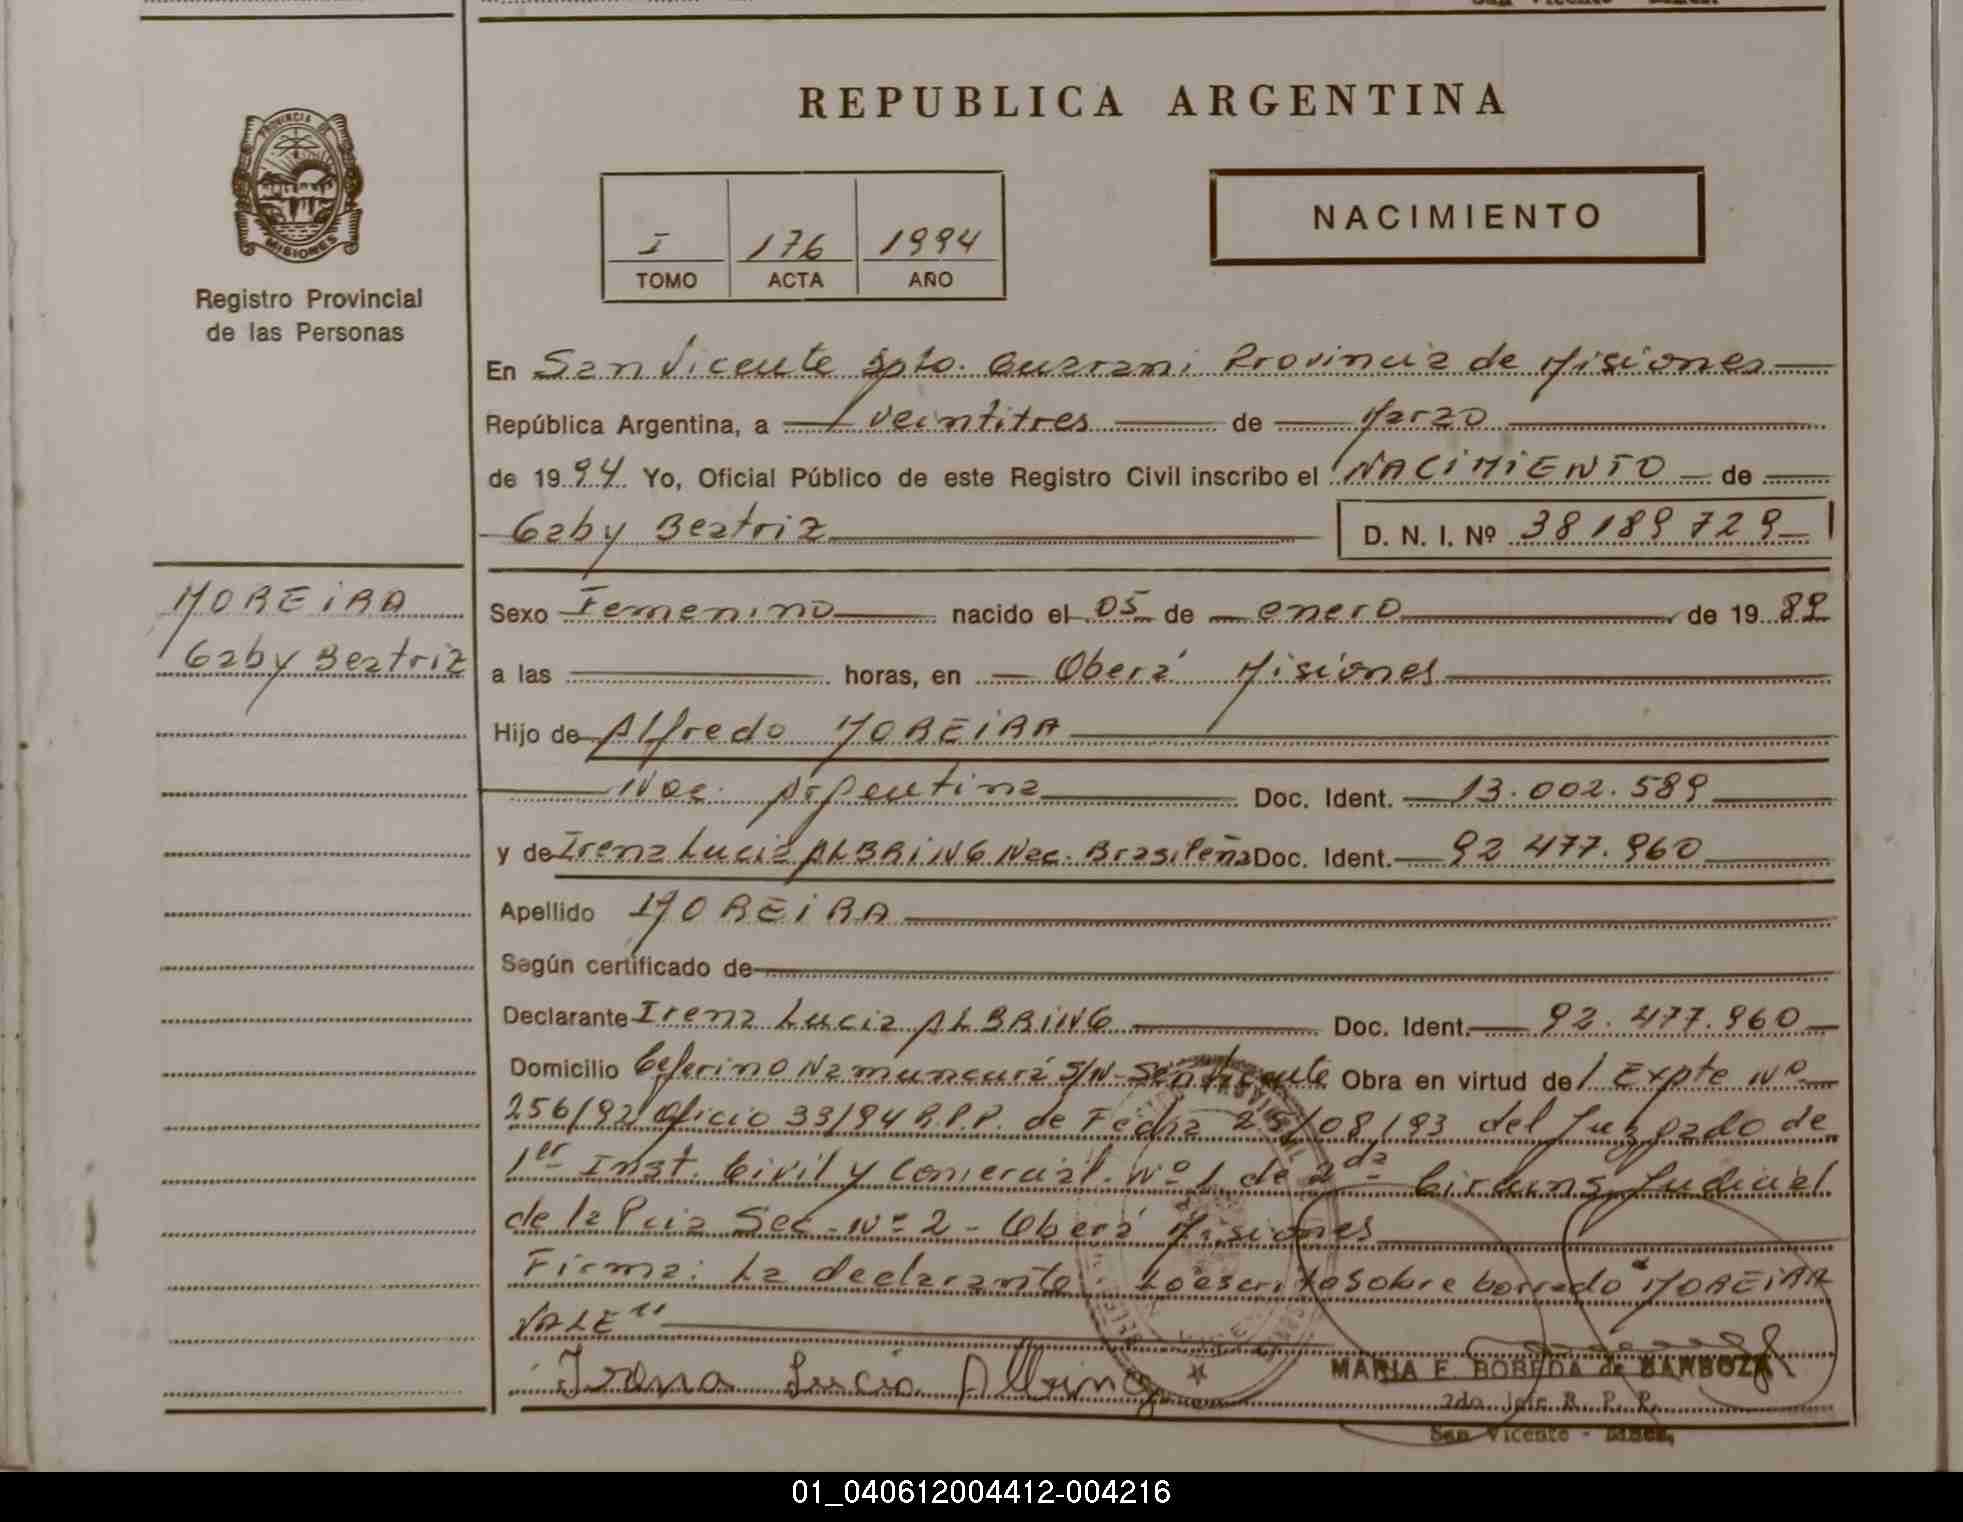 REPUBLICA ARGENTINA
PROVINCIA DE
MISIONES
Registro Provincial
de las Personas
I 176 1994
TOMO ACTA AÑO
NACIMIENTO
En San Vicente Dpto. Guarani Provincia de Misiones
República Argentina, a veintitres de Marzo
de 1994 Yo, Oficial Público de este Registro Civil inscribo el NACIMIENTO de
Gaby Beatriz D. N. I. Nº 38189729
MOREIRA
Gaby Beatriz
Sexo Femenino nacido el 05 de enero de 1989
a las horas, en Oberá Misiones
Hijo de Alfredo MOREIRA
Nac. Argentina Doc. Ident. 13.002.589
y de Irena Lucia ALBRING Nac. Brasileña Doc. Ident. 92 477.960
Apellido MOREIRA
Según certificado de
Declarante Irena Lucia ALBRING Doc. Ident. 92.477.960
Domicilio Ceferino Namuncurá S/N San Vicente Obra en virtud de Expte Nº
256/92 Oficio 33/94 R.P.P. de Fecha 25/08/93 del Juzgado de
1er Inst. Civil y Comercial Nº 1 de 2da Circuns Judicial
de la Pcia Sec. Nº 2 - Oberá Misiones
Firma: La declarante. Lo escrito sobre borrado "MOREIRA
VALE"
Irena Lucia Albring
MARIA E. BOBEDA de BARBOZA
2do. Jefe R. P. P.
San Vicente - Mnes.
01_040612004412-004216